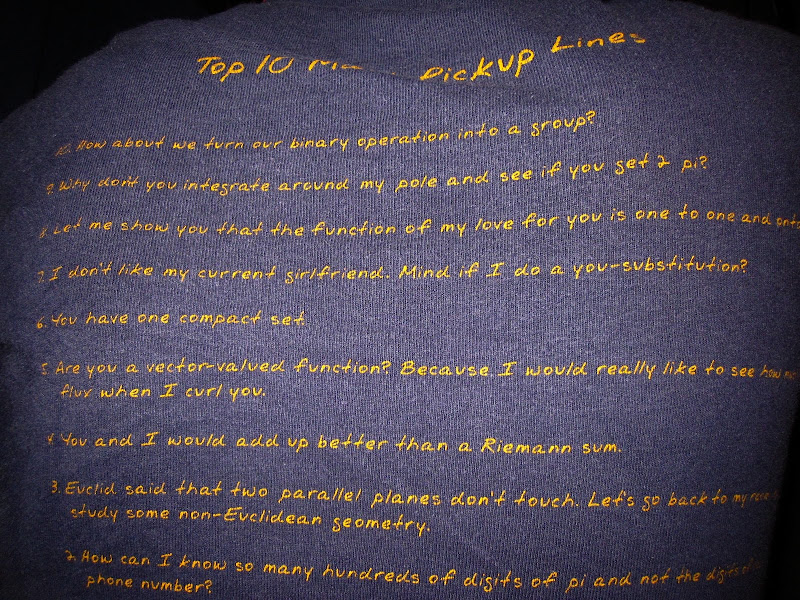 Top 10 Pickup Lines
10. How about we turn our binary operation into a group?
9. Why don't you integrate around my pole and see if you get 2 pi?
8. Let me show you that the function of my love for you is one to one and onto
7. I don't like my current girlfriend. Mind if I do a you-substitution?
6. You have one compact set
5. Are you a vector-valued function? Because I would really like to see how
flux when I curl you.
4. You and I would add up better than a Riemann sum.
3. Euclid said that two parallel planes don't touch. Let's go back to my
study some non-Euclidean geometry.
2. How can I know so many hundreds of digits of pi and not the digits
phone number?